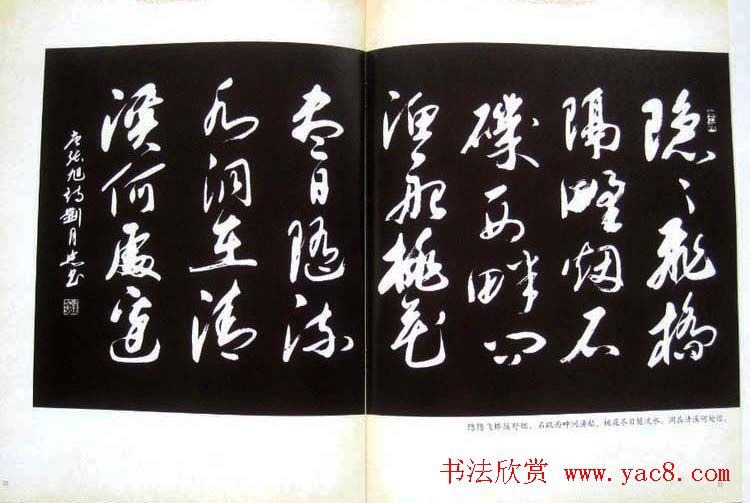 隐隐飛橋
隔野烟石
磯西畔问
渔船桃花
尽日随流
水洞在清
溪何處边
唐张旭诗劉月
隐隐飞桥隔野烟，石矶西畔问渔船，桃花尽日随流水，洞在清溪何处边。
书法欣赏 www.yac8.com